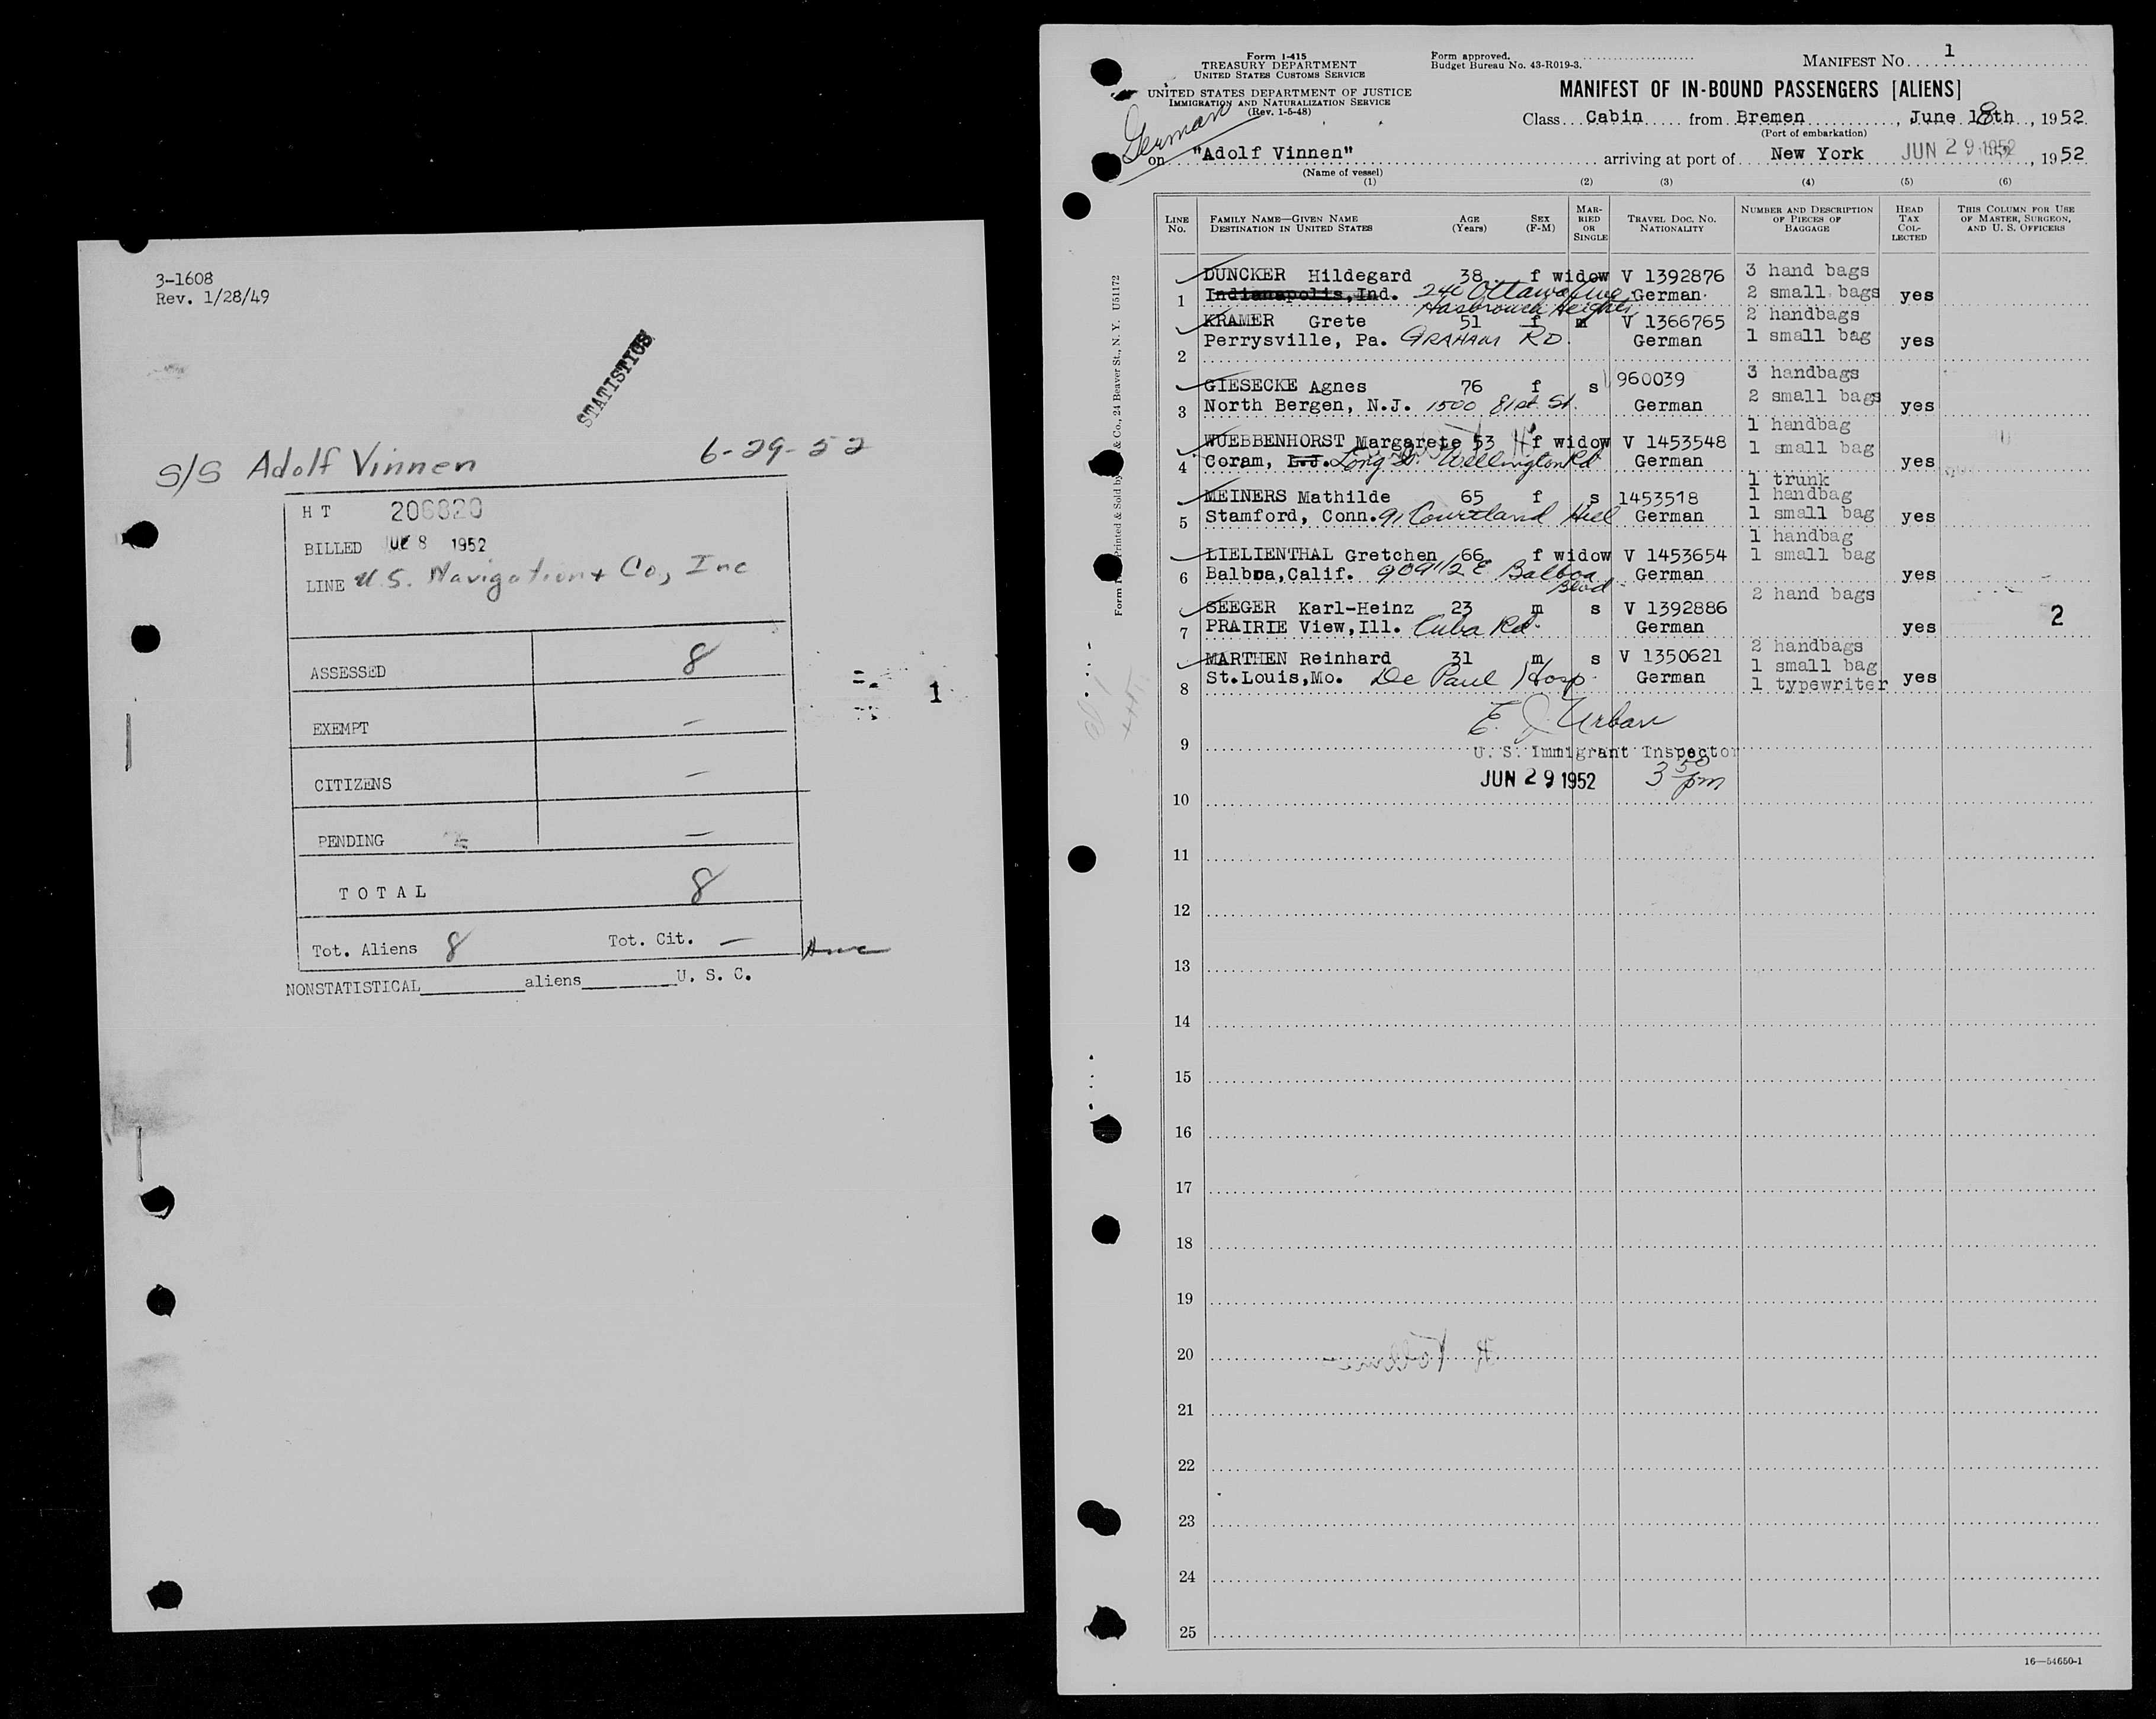 3-1608
Rev. 1/28/49
STATISTICS
S/S Adolf Vinnen 6-29-52
H T 206820
BILLED JUL 8 1952
LINE U.S. Navigation + Co, Inc
ASSESSED 8
EXEMPT —
CITIZENS —
PENDING —
TOTAL 8
Tot. Aliens 8 Tot. Cit. —
NONSTATISTICAL aliens U. S. C.
1
Form I-415
TREASURY DEPARTMENT
UNITED STATES CUSTOMS SERVICE
UNITED STATES DEPARTMENT OF JUSTICE
IMMIGRATION AND NATURALIZATION SERVICE
(Rev. 1-5-48)
German
Form approved.
Budget Bureau No. 43-R019-3.
MANIFEST No. 1
MANIFEST OF IN-BOUND PASSENGERS [ALIENS]
Class Cabin from Bremen, June 18th, 1952
(Port of embarkation)
on "Adolf Vinnen" arriving at port of New York JUN 29 1952, 1952
(Name of vessel)
(1) (2) (3) (4) (5) (6)
LINE No.
FAMILY NAME—GIVEN NAME
DESTINATION IN UNITED STATES
AGE (Years)
SEX (F-M)
MARRIED OR SINGLE
TRAVEL DOC. NO.
NATIONALITY
NUMBER AND DESCRIPTION OF PIECES OF BAGGAGE
HEAD TAX COLLECTED
THIS COLUMN FOR USE OF MASTER, SURGEON, AND U. S. OFFICERS
Printed & Sold by & Co., 24 Beaver St., N. Y. U51172
DUNCKER Hildegard 38 f widow V 1392876 3 hand bags
1 Indianapolis, Ind. 240 Ottawa Ave German 2 small bags yes
Hasbrouck Heights
KRAMER Grete 51 f m V 1366765 2 handbags
2 Perrysville, Pa. GRAHAM RD. German 1 small bag yes
GIESECKE Agnes 76 f s 960039 3 handbags
3 North Bergen, N.J. 1500 81st St. German 2 small bags yes
WUEBBENHORST Margarete 53 f widow V 1453548 1 handbag
4 Coram, L.I. Long Is. Wellington Rd German 1 small bag yes
1 trunk
MEINERS Mathilde 65 f s 1453518 1 handbag
5 Stamford, Conn. 91 Courtland Hill German 1 small bag yes
LIELIENTHAL Gretchen 66 f widow V 1453654 1 handbag
1 small bag
6 Balboa, Calif. 909 1/2 E Balboa Blvd German yes
SEEGER Karl-Heinz 23 m s V 1392886 2 hand bags
7 PRAIRIE View, Ill. Cuba Rd. German yes 2
MARTHEN Reinhard 31 m s V 1350621 2 handbags
1 small bag
8 St.Louis, Mo. De Paul Hosp. German 1 typewriter yes
E. J. Urban
9
U. S. Immigrant Inspector
JUN 29 1952 3 50 pm
10
11
12
13
14
15
16
17
18
19
20
21
22
23
24
25
16—54650-1